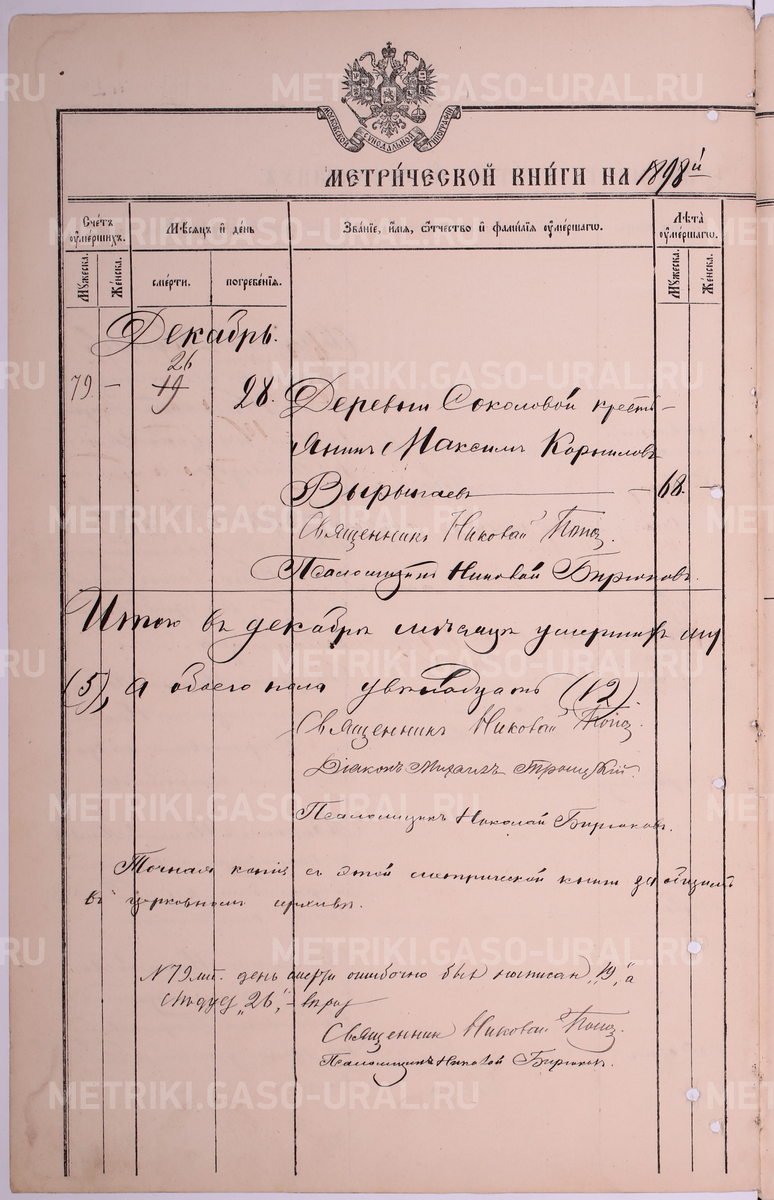 МОСКОВСКОЙ СѴНОДАЛЬНОЙ ТИПОГРАФІИ
МЕТРИ́ЧЕСКОЙ КНИ́ГИ НА 1898й
Сче́тъ ѹме́ршихъ.
Мѣсѧцъ и де́нь
Зва́нїе, и́мѧ, ѻ҆́тчество и фами́лїѧ ѹме́ршагѡ.
Лѣта̀ ѹме́ршагѡ.
Мꙋ́жеска.
Же́нска.
сме́рти.
погребе́нїѧ.
Мꙋ́жеска.
Же́нска.
Декабрь.
26
79. — 19 28. Деревни Соколовой кресть-
янинъ Максимъ Корниловъ
Вырыпаевъ — 68. —
Священникъ Николай Попов.
Псаломщикъ Николай Бирюковъ.
Итого въ декабрѣ мѣсяцѣ умершихъ му
(5), а обоего пола двѣнадцать (12).
Священникъ Николай Попов.
Діаконъ Михаилъ Троицкій.
Псаломщикъ Николай Бирюковъ.
Точная копія съ этой метрической книги
въ церковномъ архивѣ.
N 79 день смерти ошибочно был написан „19„ а
слѣдует „26„ - вѣрно
Священник Николай Попов.
Псаломщикъ Николай Бирюков.
METRIKI.GASO-URAL.RU